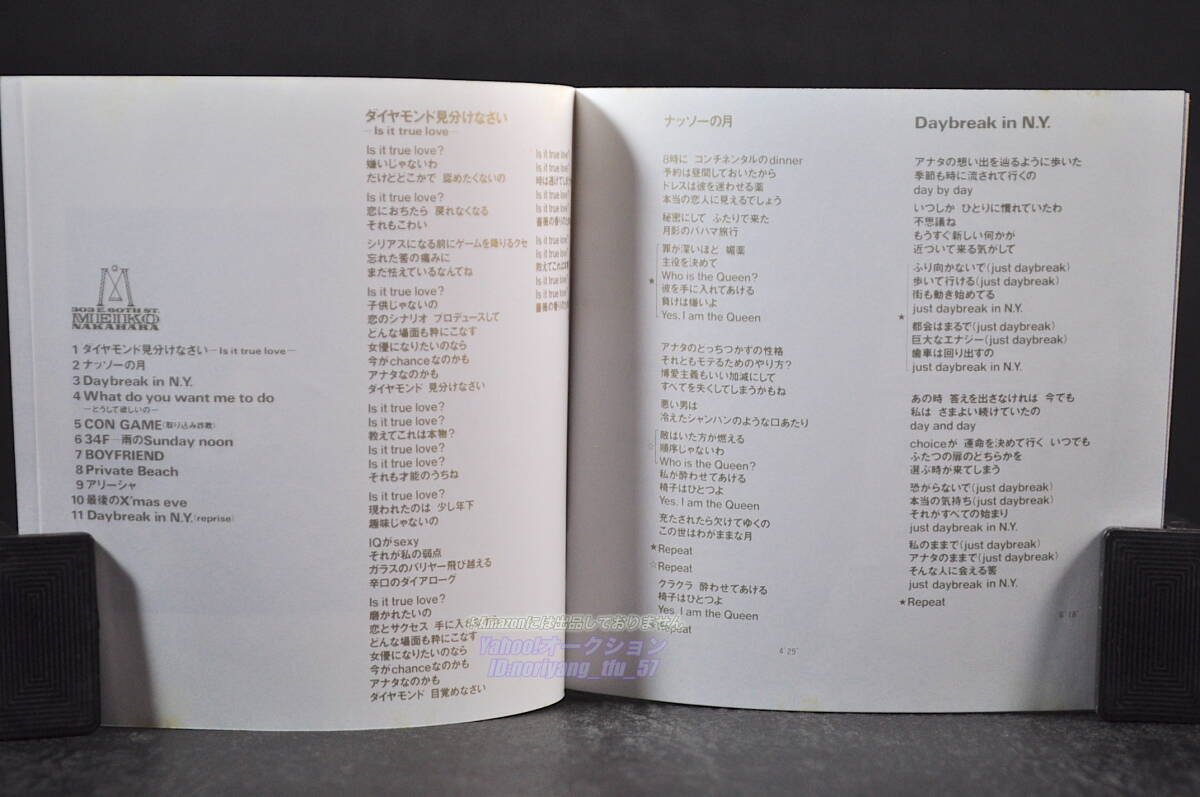 303 E. 60TH ST.
MEIKO
NAKAHARA
1 ダイヤモンド見分けなさい—Is it true love—
2 ナッソーの月
3 Daybreak in N.Y.
4 What do you want me to do
—どうして欲しいの—
5 CON GAME(取り込み詐欺)
6 34F—雨のSunday noon
7 BOYFRIEND
8 Private Beach
9 アリーシャ
10 最後のX'mas eve
11 Daybreak in N.Y.(reprise)
ダイヤモンド見分けなさい
—Is it true love—
Is it true love?
嫌いじゃないわ
だけどどこかで 認めたくないの
Is it true love?
恋におちたら 戻れなくなる
それもこわい
シリアスになる前にゲームを降りるクセ
忘れた筈の痛みに
まだ怯えているなんてね
Is it true love?
子供じゃないの
恋のシナリオ プロデュースして
どんな場面も粋にこなす
女優になりたいのなら
今がchanceなのかも
アナタなのかも
ダイヤモンド 見分けなさい
Is it true love?
Is it true love?
教えてこれは本物?
Is it true love?
Is it true love?
それも才能のうちね
Is it true love?
現われたのは 少し年下
趣味じゃないの
IQがsexy
それが私の弱点
ガラスのバリヤー飛び越える
辛口のダイアローグ
Is it true love?
磨かれたいの
恋とサクセス 手に入れ
どんな場面も粋にこなす
女優になりたいのなら
今がchanceなのかも
アナタなのかも
ダイヤモンド 目覚めなさい
Is it true love?
Is it true love?
時は逃げてしま
Is it true love?
Is it true love?
薔薇の香りのた
Is it true love?
Is it true love?
教えてこれは本
Is it true love?
Is it true love?
薔薇の香りの
ナッソーの月
8時に コンチネンタルのdinner
予約は昼間しておいたから
ドレスは彼を迷わせる薬
本当の恋人に見えるでしょう
秘密にして ふたりで来た
月影のバハマ旅行
罪が深いほど 媚薬
主役を決めて
Who is the Queen?
★彼を手に入れてあげる
負けは嫌いよ
Yes, I am the Queen
アナタのどっちつかずの性格
それともモテるためのやり方?
博愛主義もいい加減にして
すべてを失くしてしまうかもね
悪い男は
冷えたシャンパンのような口あたり
敵はいた方が燃える
☆順序じゃないわ
Who is the Queen?
私が酔わせてあげる
椅子はひとつよ
Yes, I am the Queen
充たされたら欠けてゆくの
この世はわがままな月
★Repeat
☆Repeat
クラクラ 酔わせてあげる
椅子はひとつよ
Yes, I am the Queen
Repeat
4'29"
Daybreak in N.Y.
アナタの想い出を辿るように歩いた
季節も時に流されて行くの
day by day
いつしか ひとりに慣れていたわ
不思議ね
もうすぐ新しい何かが
近づいて来る気がして
ふり向かないで(just daybreak)
歩いて行ける(just daybreak)
街も動き始めてる
just daybreak in N.Y.
★
都会はまるで(just daybreak)
巨大なエナジー(just daybreak)
歯車は回り出すの
just daybreak in N.Y.
あの時 答えを出さなければ 今でも
私は さまよい続けていたの
day and day
choiceが 運命を決めて行く いつでも
ふたつの扉のどちらかを
選ぶ時が来てしまう
恐がらないで(just daybreak)
本当の気持ち(just daybreak)
それがすべての始まり
just daybreak in N.Y.
私のままで(just daybreak)
アナタのままで(just daybreak)
そんな人に会える筈
just daybreak in N.Y.
★Repeat
6'18"
※Amazonには出品しておりません
Yahoo!オークション
ID:noriyang_tfu_57